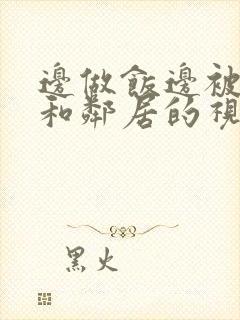 邊做飯邊被
和鄰居的視
黑火